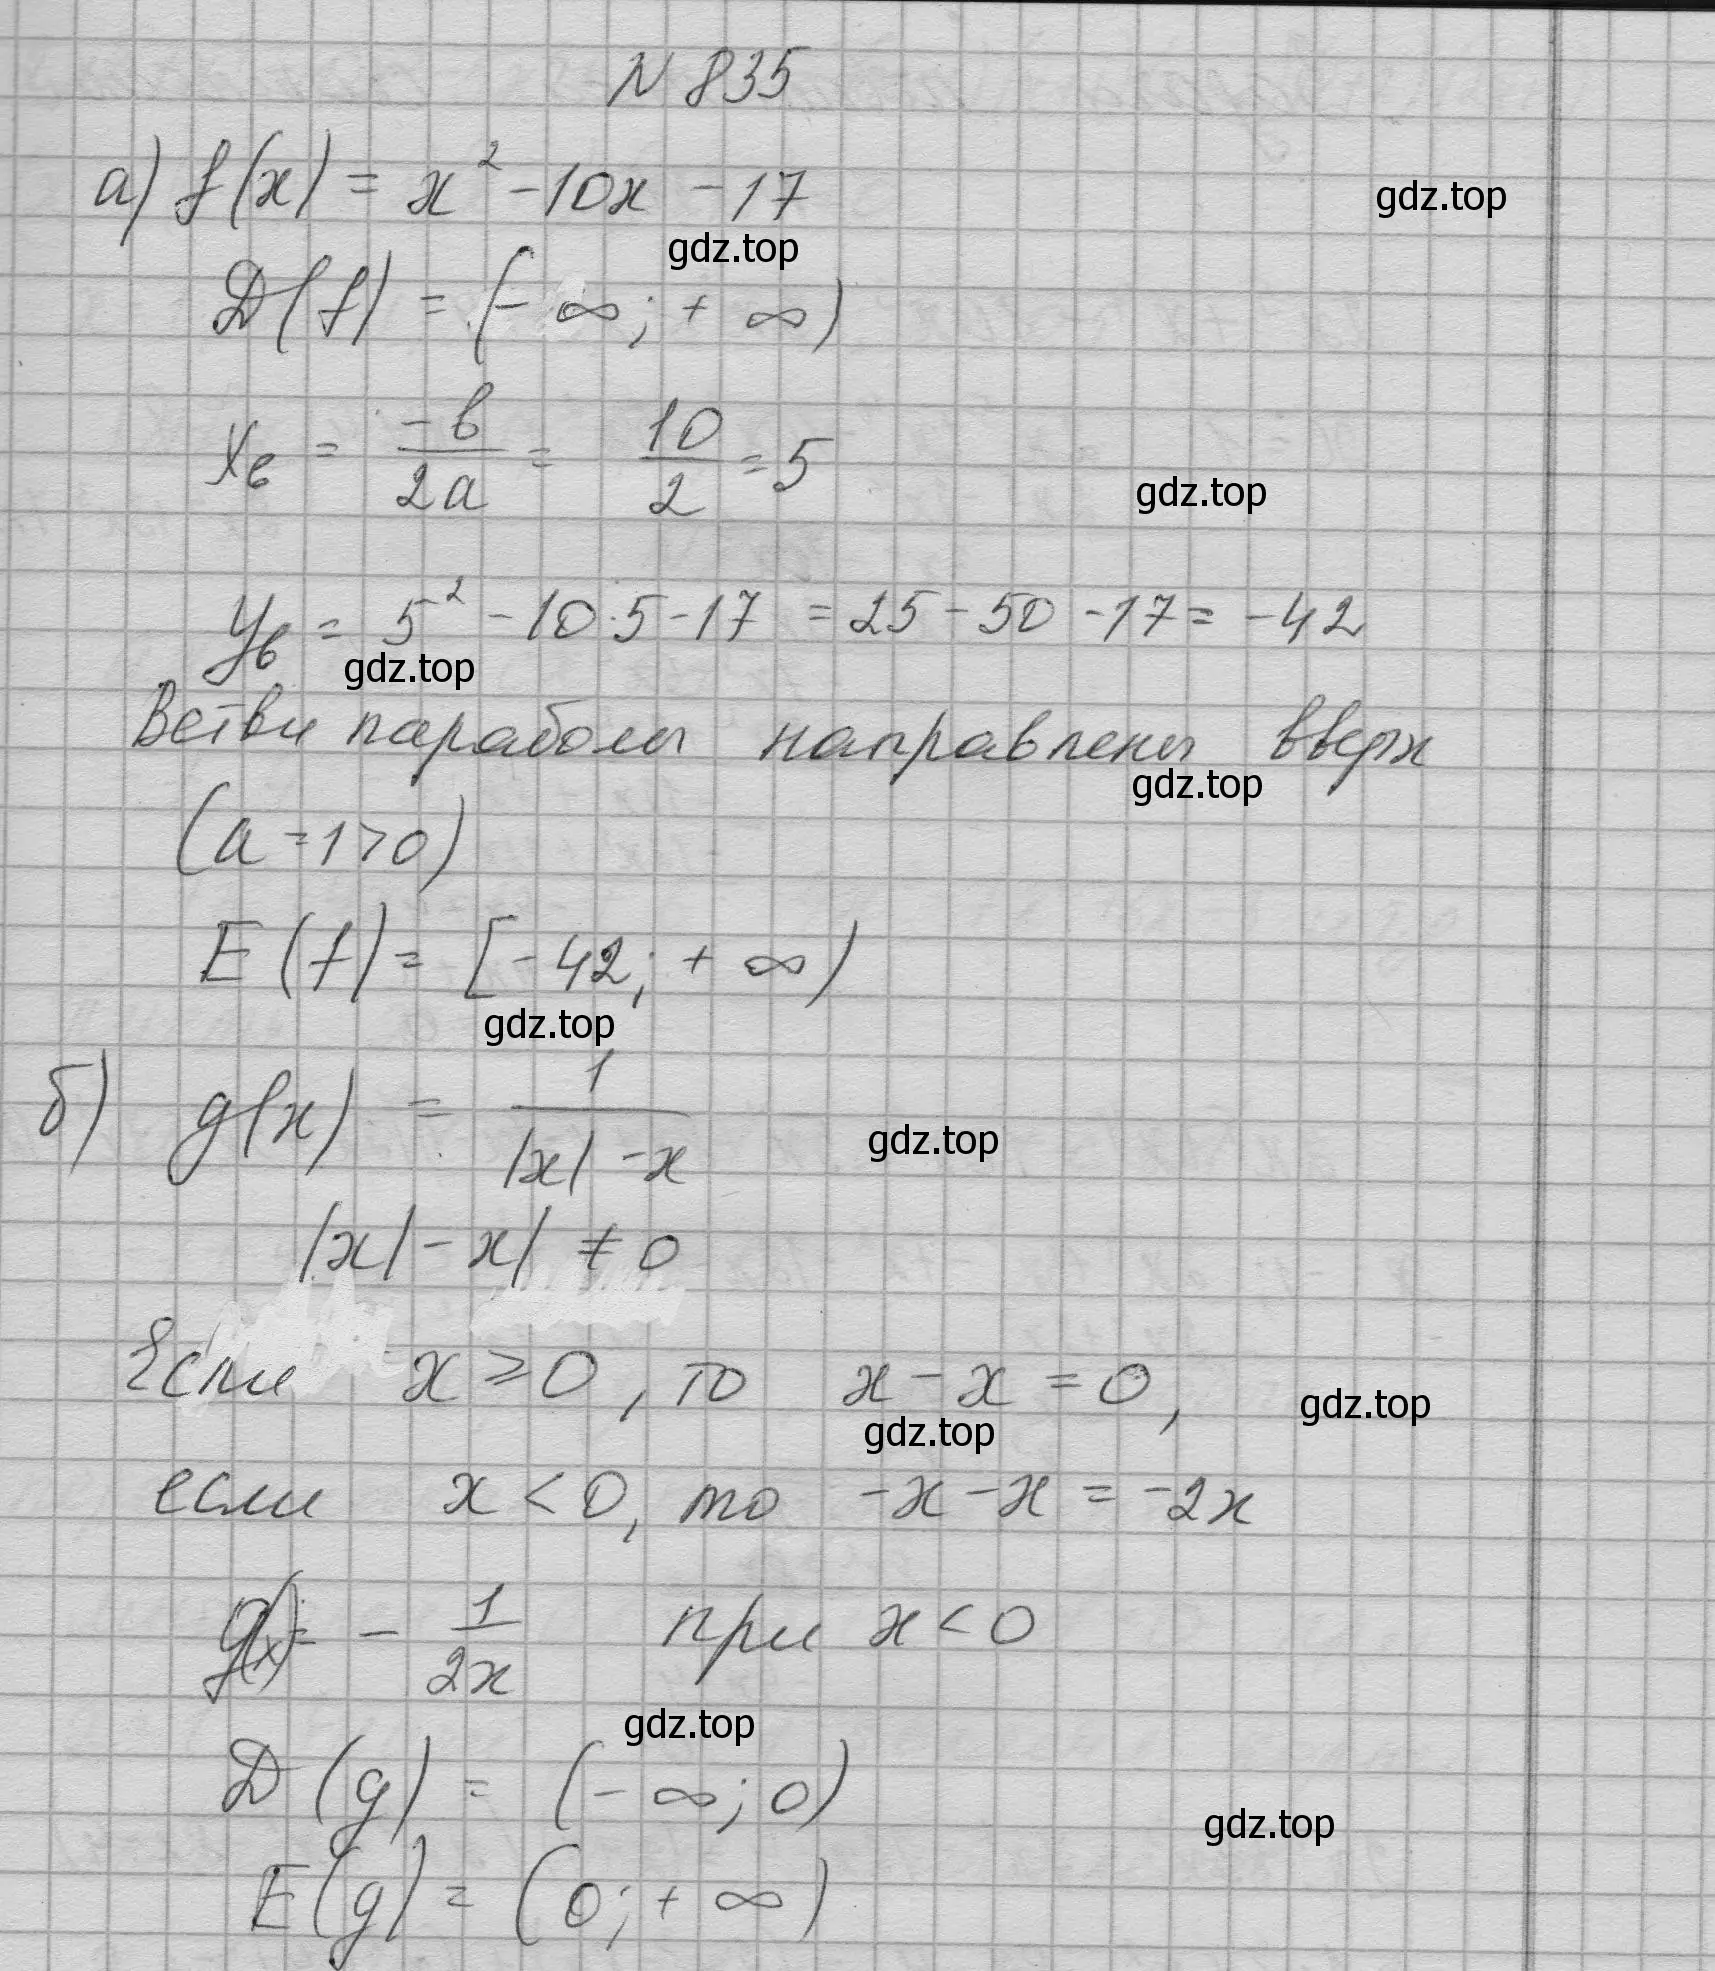 N 835
а) f(x) = x² - 10x - 17
gdz.top
gdz.top
D(f) = (-∞; +∞)
x_в = -b/2a = 10/2 = 5
gdz.top
y_в = 5² - 10·5 - 17 = 25 - 50 - 17 = -42
gdz.top
Ветви параболы направлены вверх
gdz.top
(a = 1 > 0)
E(f) = [-42; +∞)
gdz.top
б) g(x) = 1/(|x| - x)
gdz.top
|x| - x| ≠ 0
Если x ≥ 0, то x - x = 0,
gdz.top
gdz.top
если x < 0, то -x - x = -2x
g(x) = - 1/2x при x < 0
gdz.top
D(g) = (-∞; 0)
gdz.top
E(g) = (0; +∞)